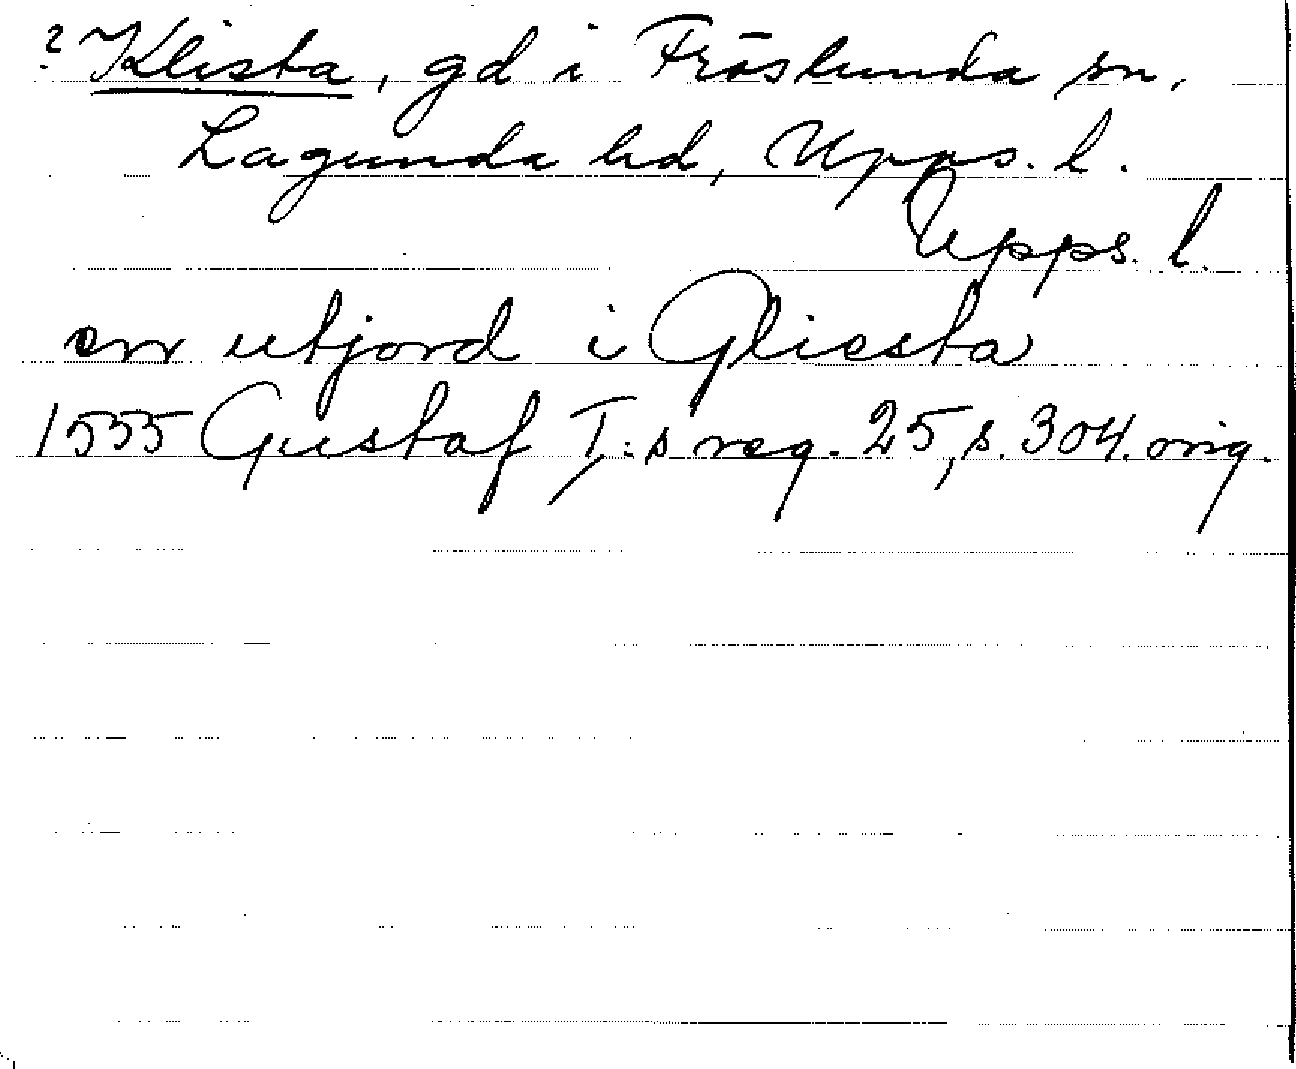 ? Klista, gd i Fröslunda sn,
Lagunda hd, Upps. l.
Upps. l.
en utjord i Glissta
1555 Gustaf I:s reg. 25, s. 304. orig.